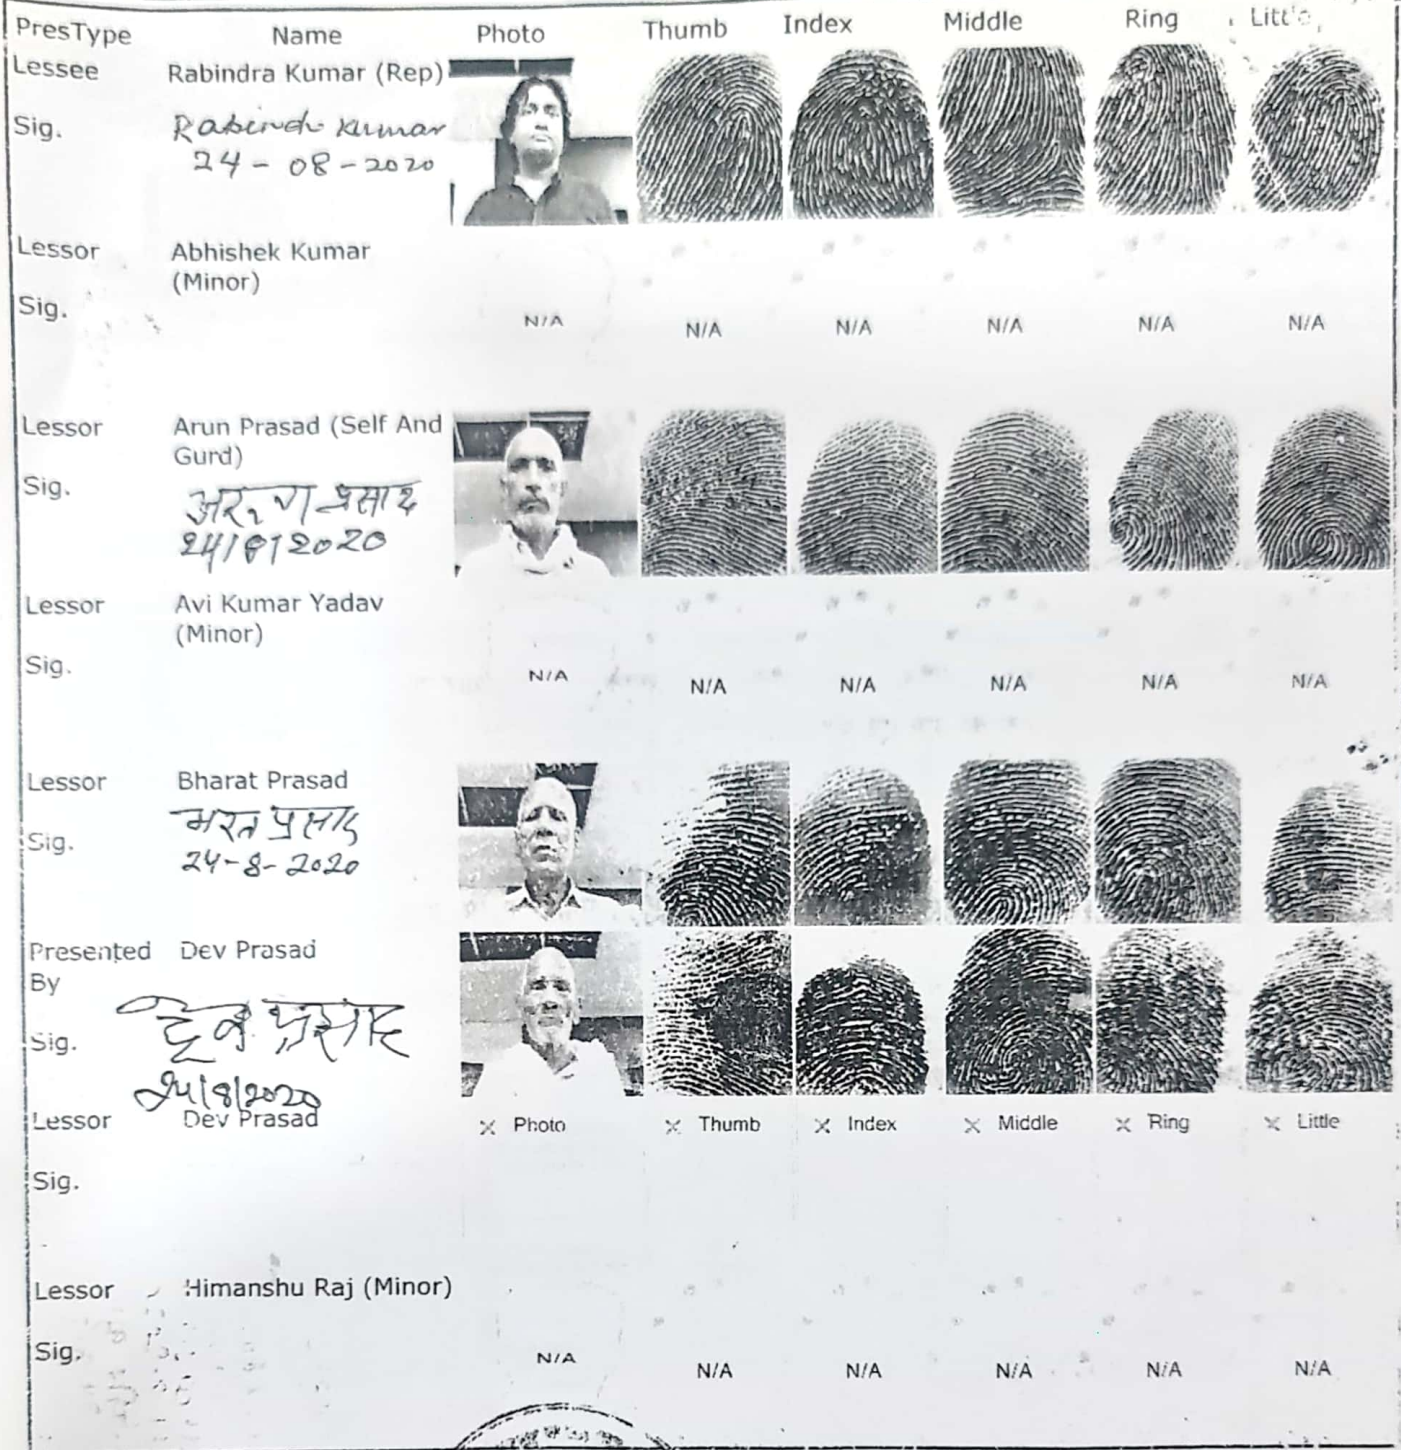 PresType Name Photo Thumb Index Middle Ring Little
Lessee Rabindra Kumar (Rep)
Sig. Rabindr Kumar
24-08-2020
Lessor Abhishek Kumar
(Minor)
Sig.
N/A N/A N/A N/A N/A N/A
Lessor Arun Prasad (Self And
Gurd)
Sig. अरुण प्रसाद
24/8/2020
Lessor Avi Kumar Yadav
(Minor)
Sig.
N/A N/A N/A N/A N/A N/A
Lessor Bharat Prasad
Sig. भरत प्रसाद
24-8-2020
Presented Dev Prasad
By
Sig. देव प्रसाद
24/8/2020
Lessor Dev Prasad × Photo × Thumb × Index × Middle × Ring × Little
Sig.
Lessor Himanshu Raj (Minor)
Sig.
N/A N/A N/A N/A N/A N/A